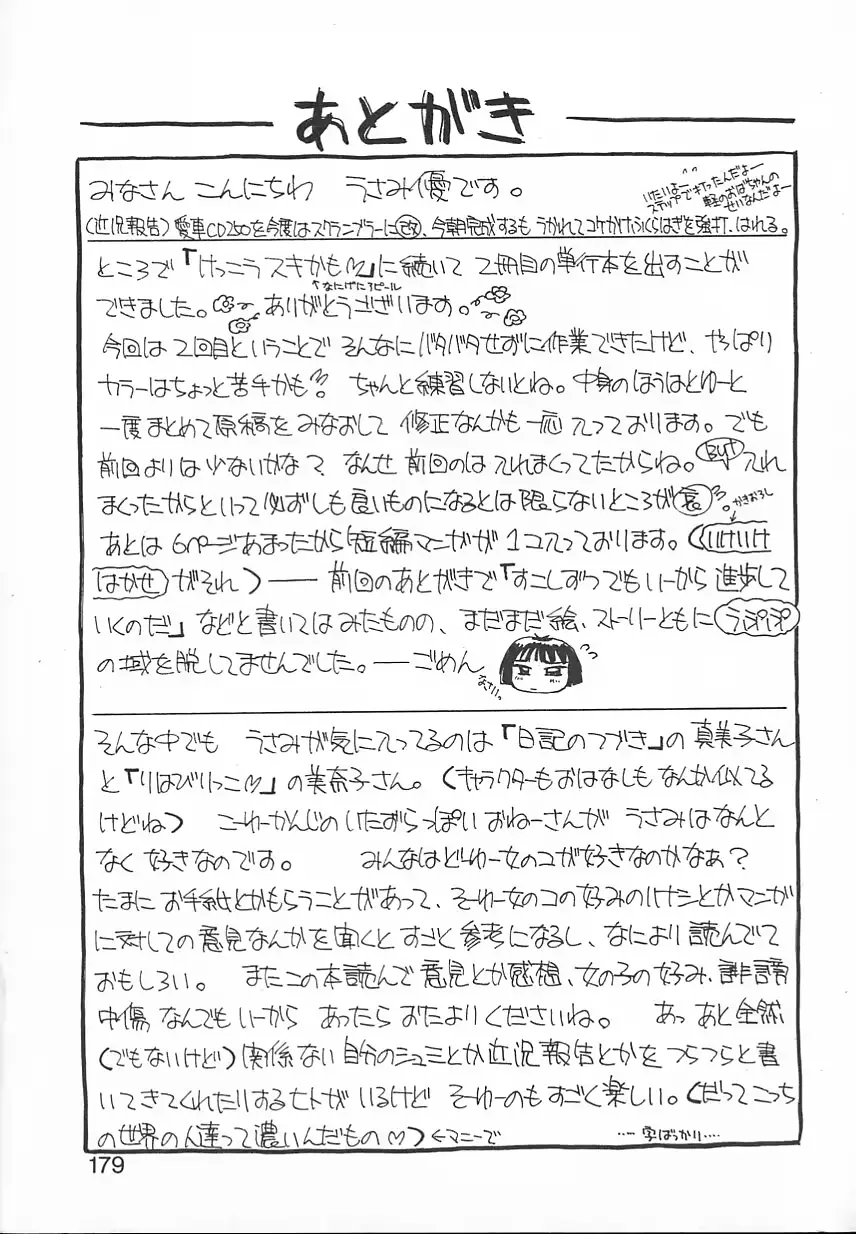 あとがき
みなさん こんにちわ うさみ優です。
いたいよー
ステップで打ったんだよー
軽のおばちゃんの
せいなんだよー
(近況報告)愛車CD250を今度はスクランブラーに改、今朝完成するも うかれてコケかけふくらはぎを強打、はれる。
ところで「けっこうスキかも♡」に続いて 2冊目の単行本を出すことが
↑なにげにアピール
できました。ありがとうございます。
今回は2回目ということで そんなにバタバタせずに作業できたけど、やっぱり
カラーはちょっと苦手かも? ちゃんと練習しないとね。中身のほうはとゆーと
一度まとめて原稿を みなおして 修正なんかも一応 入っております。でも
前回よりは少ないかな? なんせ前回のは入れまくってたからね。But 入れ
まくったからといって必ずしも良いものになるとは限らないところが 哀。
かきおろし
あとは6ページあまったから短編マンガが1コ入っております。(いけいけ
はかせ がそれ)── 前回のあとがきで「すこしずつでもいーから進歩して
いくのだ」などと書いてはみたものの、まだまだ絵、ストーリーともに うぷぷ
の域を脱してませんでした。──ごめん
なさい。
そんな中でも うさみが気に入ってるのは「日記のつづき」の真美子さん
と「りはびりっこ♡」の美奈子さん。(キャラクターもおはなしもなんか似てる
けどね) こーゆーかんじのいたずらっぽいおねーさんが うさみはなんと
なく好きなのです。 みんなはどーゆー女のコが好きなのかなぁ?
たまに お手紙とかもらうことがあって、そーゆー女のコの好みのハナシとかマンガ
に対しての意見なんかを聞くと すごく参考になるし、なにより読んでて
おもしろい。 またこの本読んで意見とか感想、女の子の好み、誹謗
中傷 なんでもいーから あったら おたよりくださいね。 あっ あと全然
(でもないけど)関係ない自分のシュミとか近況報告とかを つらつらと書
いてきてくれたりするヒトが いるけど そーゆーのもすごく楽しい。(だってこっち
の世界の人達って濃いんだもの♡)←マニーで
…実ばっかり…
179